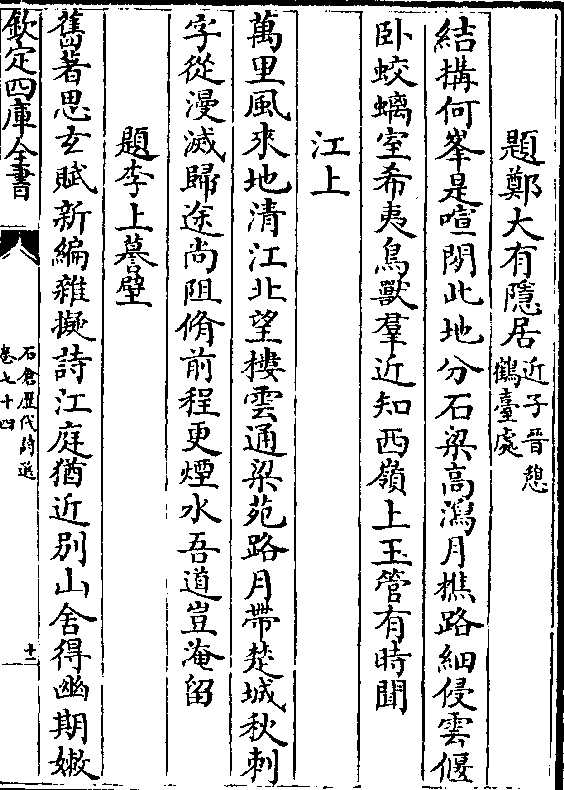 題鄭大有隱居近子晉憩鶴臺處
結搆何峯是喧閒此地分石梁高瀉月樵路細侵雲偃
卧蛟螭室希夷鳥獸羣近知西嶺上玉管有時聞
江上
萬里風來地清江北望樓雲通梁苑路月帶楚城秋刺
字從漫滅歸途尚阻脩前程更煙水吾道豈淹留
題李上謩壁
舊著思玄賦新編雜擬詩江庭猶近別山舍得幽期嫩
欽定四庫全書
石倉歷代詩選
卷七十四
十一